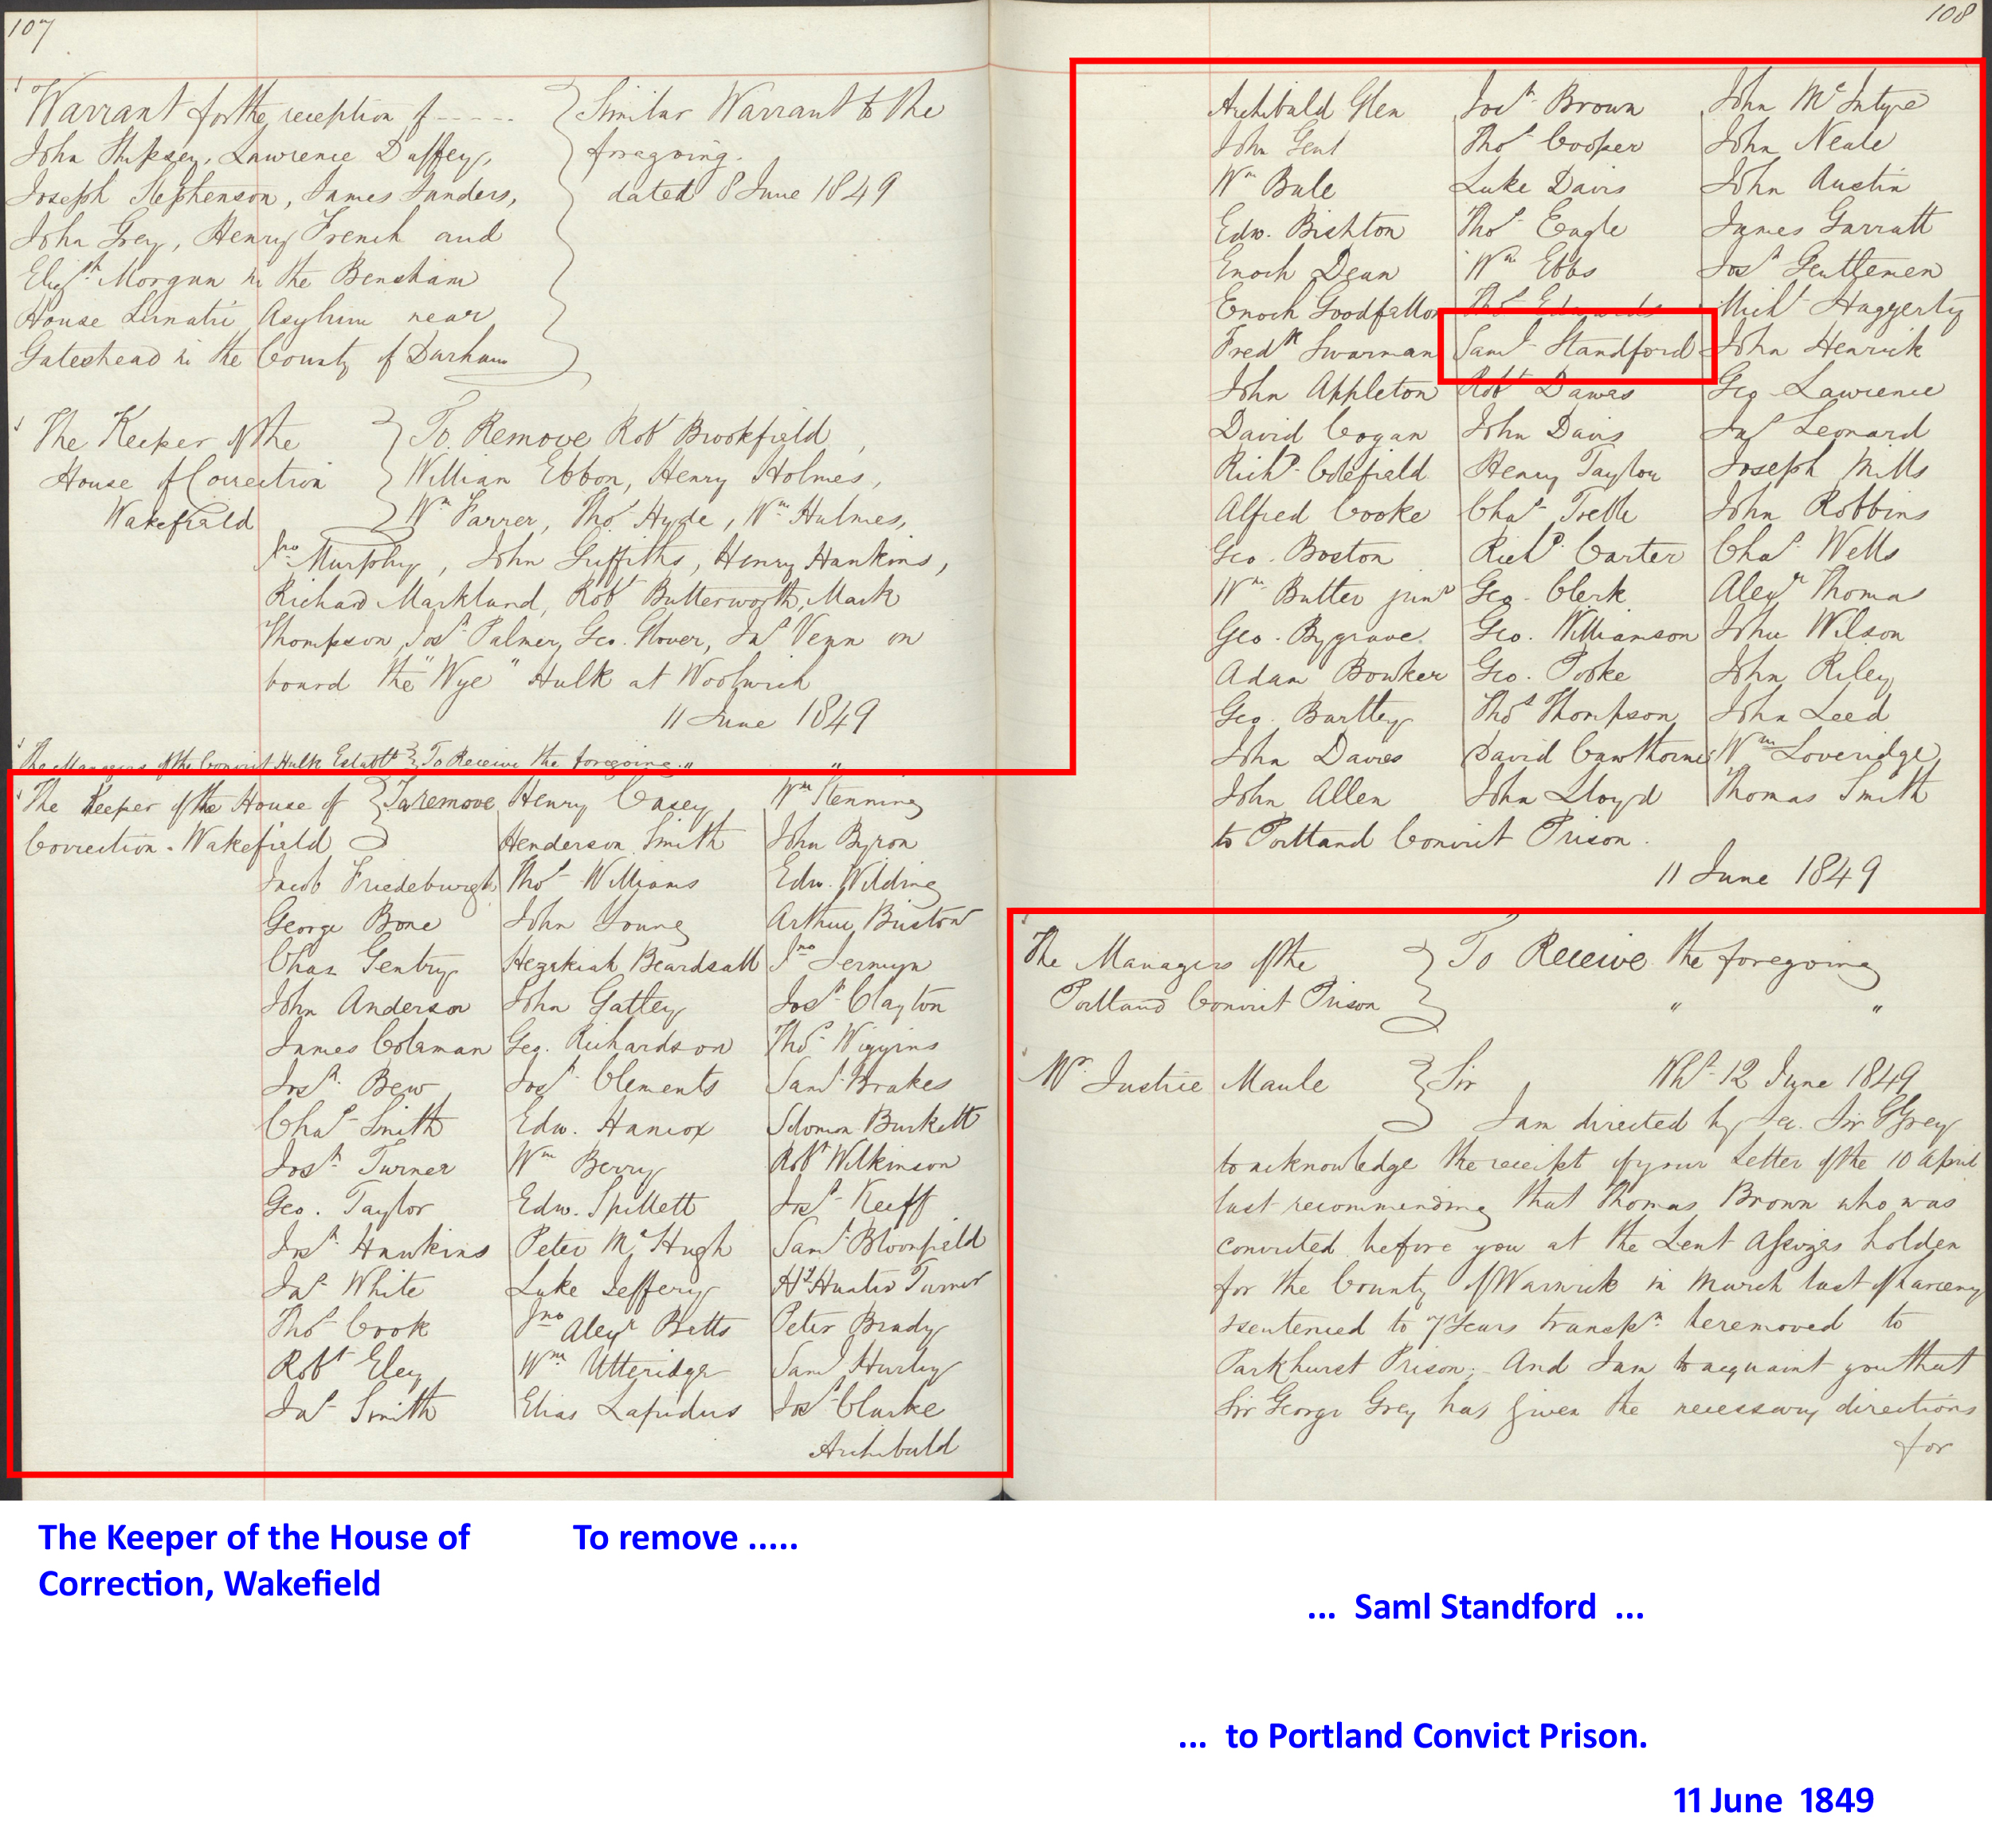 107
Warrant for the reception of -----
John Thipsey, Lawrence Duffey,
Joseph Stephenson, James Sanders,
John Grey, Henry French and
Elizth Morgan in the Bensham
House Lunatic Asylum near
Gateshead in the County of Durham
Similar Warrant to the
foregoing.
dated 8 June 1849
The Keeper of the
House of Correction
Wakefield
To Remove Robt Brookfield,
William Ebbon, Henry Holmes,
Wm Farrer, Thos Hyde, Wm Hulmes,
Jno Murphy, John Griffiths, Henry Hankins,
Richard Markland, Robt Butterworth, Mark
Thompson, Josh Palmer, Geo. Glover, Jas Venn on
board the "Wye" Hulk at Woolwich
11 June 1849
The Managers of the Convict Hulk Establt To Receive the foregoing " "
The Keeper of the House of
Correction - Wakefield
To remove Henry Casey Wm Stenning
Henderson Smith John Byron
Jacob Friedeburgh Thos Williams Edw. Wilding
George Bone John Young Arthur Buxton
Chas Gentry Hezekiah Beardsall Jno Jermyn
John Anderson John Gatley Josh Clayton
James Coleman Geo. Richardson Thos Wiggins
Josh Bew Josh Clements Saml Brakes
Chas Smith Edw. Hancox Solomon Burkett
Josh Turner Wm Berry Robt Wilkinson
Geo. Taylor Edw. Spillett Jas Keeff
Josh Hawkins Peter McHugh Saml Bloomfield
Jas White Luke Jeffery Hy Hunter Turner
Thos Cook Jno Alexr Betts Peter Brady
Robt Eley Wm Utteridge Saml Hurley
Jas Smith Elias Lapidus Jos Clarke
Archibald
108
Archibald Glen Josh Brown John McIntyre
John Gent Thos Cooper John Neale
Wm Bale Luke Davis John Austin
Edw. Bishton Thos Eagle James Garratt
Enoch Dean Wm Ebbs Josh Gentlemen
Enoch Goodfellow Thos Edwards Michl Haggerty
Fredk Swarman Saml Standford John Henrick
John Appleton Robt Dawes Geo Lawrence
David Cogan John Davis Jas Leonard
Richd Colefield Henry Taylor Joseph Mills
Alfred Cooke Chas Treble John Robbins
Geo. Boston Richd Carter Chas Wells
Wm Butter junr Geo. Clerk Alexr Thomas
Geo. Bygrave Geo. Williamson John Wilson
Adam Bowker Geo. Pooke John Riley
Geo. Bartley Thos Thompson John Leed
John Davies David Cawthorne Wm Loveridge
John Allen John Lloyd Thomas Smith
to Portland Convict Prison.
11 June 1849
The Managers of the
Portland Convict Prison
To Receive the foregoing
" "
Mr Justice Maule
Sir Whl 12 June 1849
I am directed by Sec. Sir GGrey
to acknowledge the receipt of your Letter of the 10 April
last recommending that Thomas Brown who was
convicted before you at the Lent Assizes holden
for the County of Warwick in March last of larceny
& sentenced to 7 Years transpn be removed to
Parkhurst Prison; - And I am to acquaint you that
Sir George Grey has given the necessary directions
for
The Keeper of the House of To remove .....
Correction, Wakefield
... Saml Standford ...
... to Portland Convict Prison.
11 June 1849